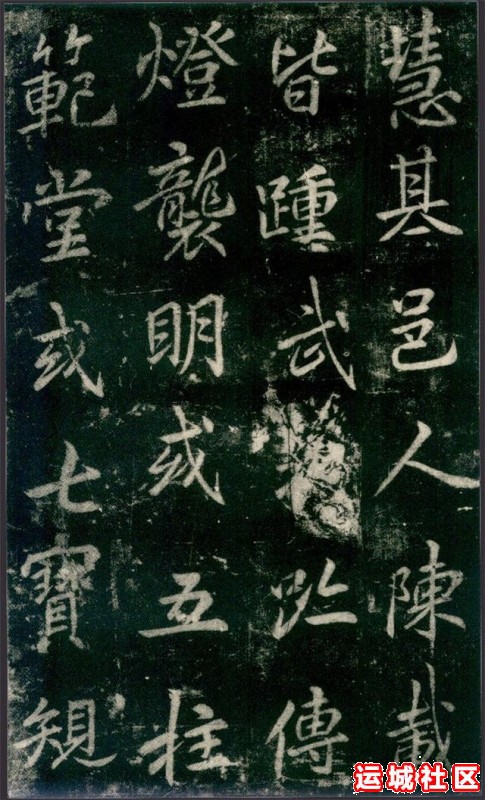 慧基邑人陳載
皆踵武趾傳
燈襲明或五柱
範堂或七寶規
运城社区